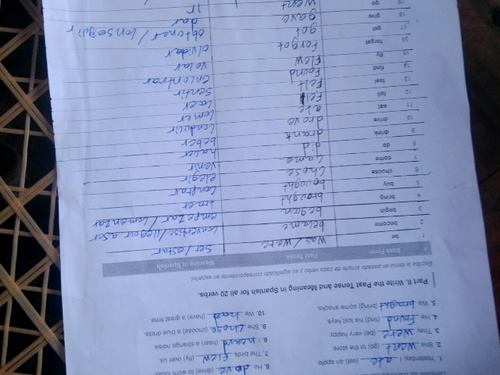 1. Yesterday, I ate (eat) an apple.
2. She went (go) to the store.
3. They were (be) very happy.
4. found (find) his lost keys.
5. We brought (bring) some snacks.
6. He drove (drive) to work
7. The birds flew (fly) over us.
8. I heard (hear) a strange noise.
9. She chose (choose) a blue dress.
10. We had (have) a great time.
Write the Past Tense and Meaning in Spanish for all 20 verbs.
Escriba la forma en pasado simple de cada verbo y su significado correspondiente en español
# Base Form Past Tense Meaning in Spanish
1 be was/were ser/estar
2 become became convertirse/llegar a ser
3 begin began empezar/comenzar
4 bring brought traer
5 buy bought comprar
6 choose chose elegir
7 come came venir
8 do did hacer
9 drink drank beber
10 drive drove conducir
11 eat ate comer
12 fall fell caer
13 feel felt sentir
14 find found encontrar
15 fly flew volar
16 forget forgot olvidar
17 get got obtener/conseguir
18 give gave dar
19 go went ir